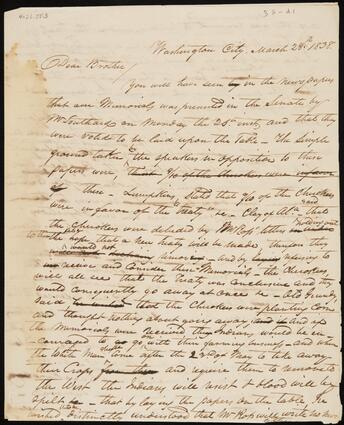 4026.353
Washington City, March 28th 1838
Dear Brother
You will have seen in the Newspapers
that our Memorials was presented in the Senate by
Mr Southard on Monday the 26th inst, and that they
were voted to be laid upon the Table – The simple
ground taken by the speakers in opposition to these
papers were,
if them – Lumpkin stated that 7/10 of the Cherokees
were in favor of the Treaty, – Clay of Ala. – that
the Cherokees were deluded by Mr Ross' letters
holding out
to the hope that a new Treaty will be made,
would not remove – and by refusing to
receive and consider these Memorials – the Cherokees
will all see that the Treaty was conclusive and they
would consequently go away at once – Old Grundy
said that the Cherokees are planting Corn
and thought nothing about going away and that if
the Memorials were received the Indians would be en-
couraged to go on with their farming business – and when
the white man came after the 23rd of May to take away
their Crops and require them to remove to
the West the Indians will resist & blood will be
spilt – that by laying the papers on the table. He
wished it distinctly understood that Mr Ross will write no more